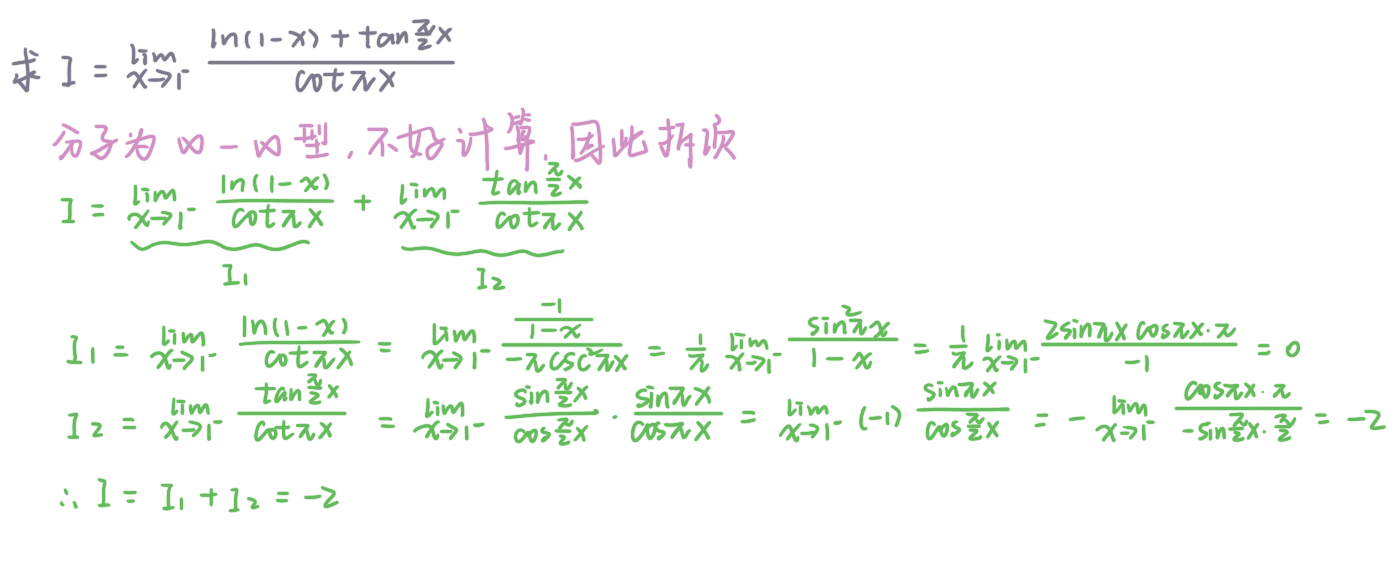 求 I = lim_{x→1⁻} \frac{ln(1-x) + tan\frac{π}{2}x}{cotπx}
分子为 ∞-∞ 型,不好计算,因此拆项
I = lim_{x→1⁻} \frac{ln(1-x)}{cotπx} + lim_{x→1⁻} \frac{tan\frac{π}{2}x}{cotπx}
I₁ I₂
I₁ = lim_{x→1⁻} \frac{ln(1-x)}{cotπx} = lim_{x→1⁻} \frac{\frac{-1}{1-x}}{-πcsc²πx} = \frac{1}{π} lim_{x→1⁻} \frac{sin²πx}{1-x} = \frac{1}{π} lim_{x→1⁻} \frac{2sinπx cosπx·π}{-1} = 0
I₂ = lim_{x→1⁻} \frac{tan\frac{π}{2}x}{cotπx} = lim_{x→1⁻} \frac{sin\frac{π}{2}x}{cos\frac{π}{2}x} · \frac{sinπx}{cosπx} = lim_{x→1⁻} (-1) \frac{sinπx}{cos\frac{π}{2}x} = - lim_{x→1⁻} \frac{cosπx·π}{-sin\frac{π}{2}x·\frac{π}{2}} = -2
∴ I = I₁ + I₂ = -2